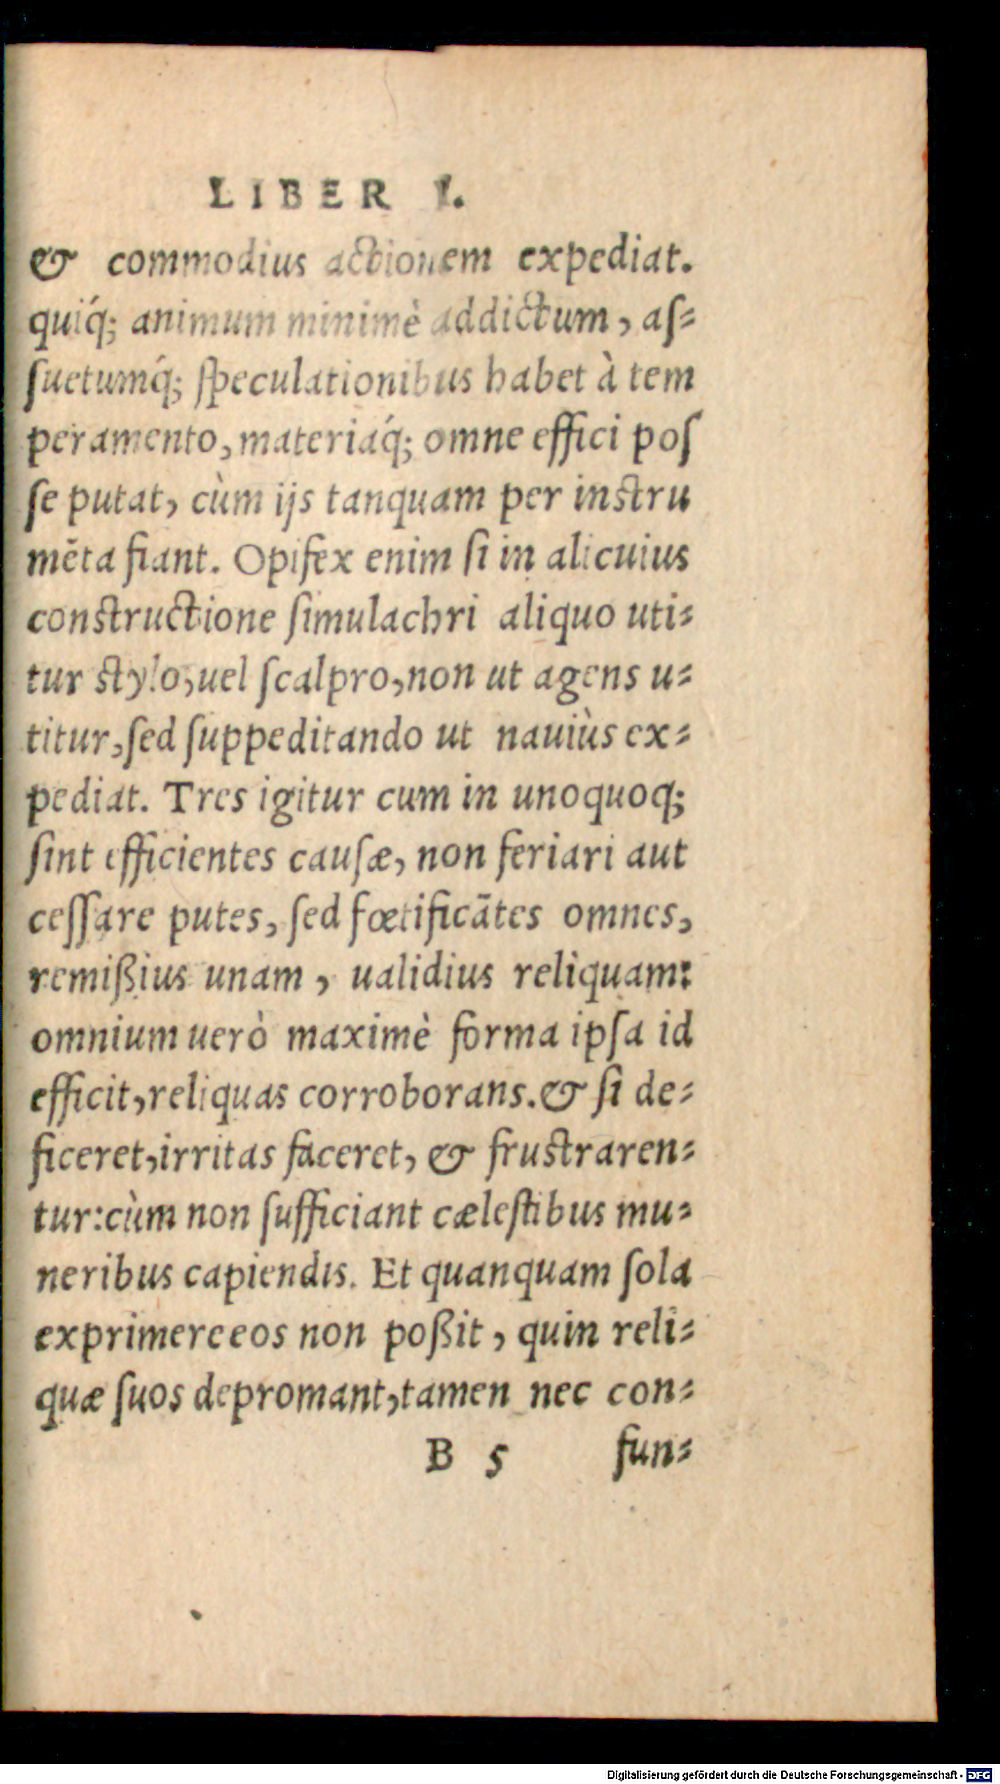 LIBER I.
& commodius actionem expediat.
quiq́; animum minimè addictum, aſ-
ſuetumq́; ſpeculationibus habet à tem
peramento, materiaq́; omne effici poſ
ſe putat, cùm ijs tanquam per inſtru
mēta fiant. Opifex enim ſi in alicuius
conſtructione ſimulachri aliquo uti-
tur ſtylo, uel ſcalpro, non ut agens u-
titur, ſed ſuppeditando ut nauiùs ex-
pediat. Tres igitur cum in unoquoq;
ſint efficientes cauſæ, non feriari aut
ceſſare putes, ſed fœtificātes omnes,
remißius unam, ualidius reliquam:
omnium uerò maximè forma ipſa id
efficit, reliquas corroborans. & ſi de-
ficeret, irritas faceret, & fruſtraren-
tur: cùm non ſufficiant cæleſtibus mu-
neribus capiendis. Et quanquam ſola
exprimere eos non poßit, quin reli-
quæ ſuos depromant, tamen nec con-
B 5 fun-
Digitalisierung gefördert durch die Deutsche Forschungsgemeinschaft - DFG